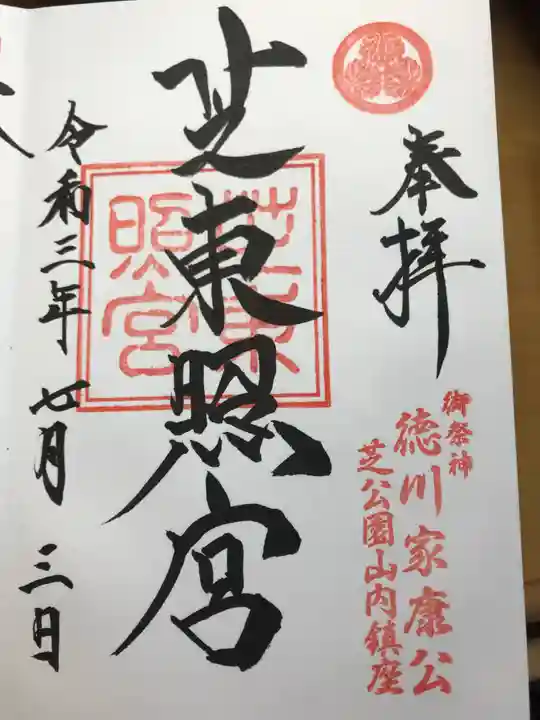 奉拝
御祭神
徳川家康公
芝公園山内鎮座
芝東照宮
芝東照宮
令和三年七月三日